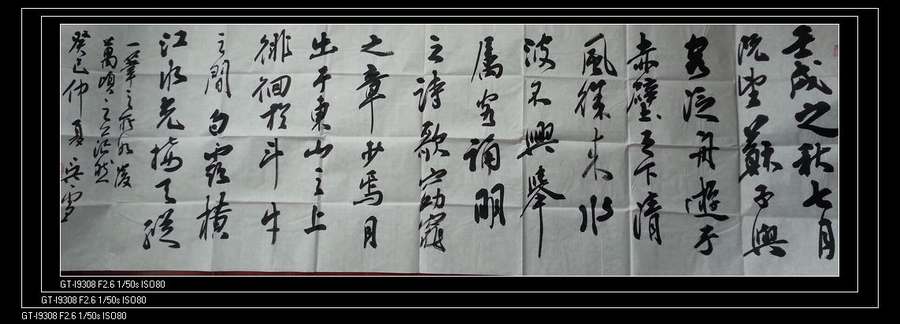 壬戌之秋七月
既望蘇子與
客泛舟遊于
赤壁之下清
風徐來水
波不興舉
屬客誦明
之詩歌窈窕
之章少焉月
出于東山之上
徘徊於斗牛
之間白露橫
江水光接天縱
一葦之所如凌
萬頃之茫然
癸巳仲夏
GT-I9308 F2.6 1/50s ISO80
GT-I9308 F2.6 1/50s ISO80
GT-I9308 F2.6 1/50s ISO80